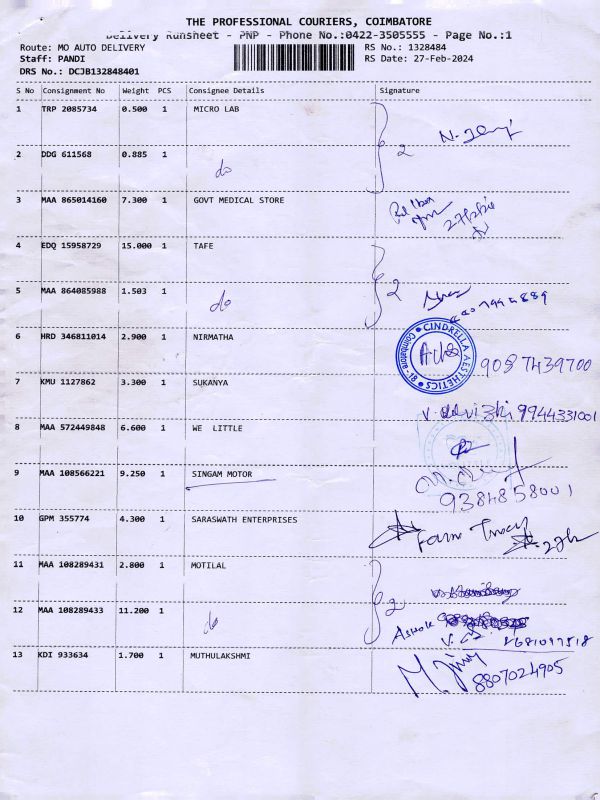 THE PROFESSIONAL COURIERS, COIMBATORE
Delivery Runsheet - PNP - Phone No.:0422-3505555 - Page No.:1
Route: MO AUTO DELIVERY RS No.: 1328484
Staff: PANDI RS Date: 27-Feb-2024
DRS No.: DCJB132848401
S No Consignment No Weight PCS Consignee Details Signature
1 TRP 2085734 0.500 1 MICRO LAB
2
2 DDG 611568 0.885 1 do
3 MAA 865014160 7.300 1 GOVT MEDICAL STORE
4 EDQ 15958729 15.000 1 TAFE
2
5 MAA 864085988 1.503 1 do
6 HRD 346811014 2.900 1 NIRMATHA
CINDRELLA AESTHETICS Coimbatore - 18
9087439700
7 KMU 1127862 3.300 1 SUKANYA
9944331001
8 MAA 572449848 6.600 1 WE LITTLE
9 MAA 108566221 9.250 1 SINGAM MOTOR
9384858001
10 GPM 355774 4.300 1 SARASWATH ENTERPRISES
11 MAA 108289431 2.800 1 MOTILAL
2
12 MAA 108289433 11.200 1 do
Ashok
13 KDI 933634 1.700 1 MUTHULAKSHMI
8807024905